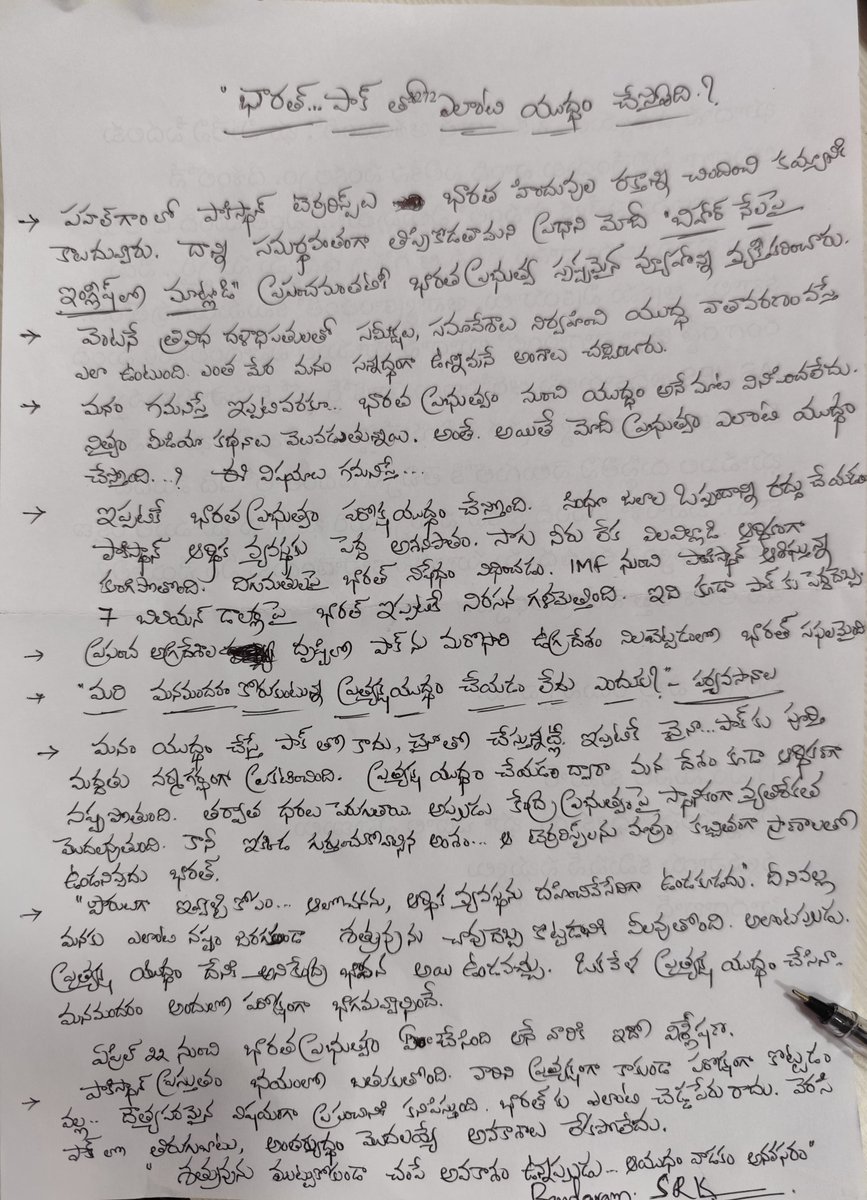 "భారత్... పాక్ తో ఎలాంటి యుద్ధం చేస్తోంది.?
→ పహల్‌గాం లో పాకిస్థాన్ టెర్రరిస్టులు భారత హిందువుల రక్తాన్ని చిందించి కవ్వానికి
కాలుదువ్వారు. దాన్ని సమర్థవంతంగా తిప్పికొడతామని ప్రధాని మోదీ "బిహార్ నేలపై
ఇంగ్లీష్‌లో మాట్లాడి" ప్రపంచమంతటికీ భారత ప్రభుత్వ స్పష్టమైన వ్యూహాన్ని వ్యక్తీకరించారు.
→ వెంటనే త్రివిధ దళాధిపతులతో సమీక్షలు, సమావేశాలు నిర్వహించి యుద్ధ వాతావరణం వస్తే
ఎలా ఉంటుంది. ఎంత మేర మనం సన్నద్ధంగా ఉన్నామనే అంశాలు చర్చించారు.
→ మనం గమనిస్తే ఇప్పటివరకూ.. భారత ప్రభుత్వం నుంచి యుద్ధం అనే మాట వినిపించలేదు.
నిత్యం మీడియా కథనాలు వెలువడుతున్నాయి. అంతే. అయితే మోదీ ప్రభుత్వం ఎలాంటి యుద్ధం
చేస్తోంది...? ఈ విషయాలు గమనిస్తే...
→ ఇప్పటికే భారత ప్రభుత్వం పరోక్ష యుద్ధం చేస్తోంది. సింధూ జలాల ఒప్పందాన్ని రద్దు చేయడం
పాకిస్థాన్ ఆర్థిక వ్యవస్థకు పెద్ద అశనిపాతం. సాగు నీరు లేక విలవిల్లాడి ఆర్థికంగా
కుంగిపోతోంది. దిగుమతులపై భారత్ నిషేధం విధించడం. IMF నుంచి పాకిస్థాన్ ఆశిస్తున్న
7 బిలియన్ డాలర్లపై భారత్ ఇప్పటికే నిరసన గళమెత్తింది. ఇది కూడా పాక్ కు పెద్దదెబ్బ
→ ప్రపంచ అగ్రదేశాల దృష్టిలో పాక్ ను మరోసారి ఉగ్రదేశం నిలబెట్టడంలో భారత్ సఫలమైంది
→ "మరి మనమందరం కోరుకుంటున్న ప్రత్యక్షయుద్ధం చేయడం లేదు ఎందుకు?"- పర్యవసానాలు
→ మనం యుద్ధం చేస్తే పాక్ తో కాదు, చైనాతో చేస్తున్నట్లే. ఇప్పటికే చైనా...పాక్ కు పూర్తి
మద్దతు నర్మగర్భంగా ప్రకటించింది. ప్రత్యక్ష యుద్ధం చేయడం ద్వారా మన దేశం కూడా ఆర్థికంగా
నష్టపోతుంది. తర్వాత ధరలు పెరుగుతాయి. అప్పుడు కేంద్ర ప్రభుత్వంపై స్థానికంగా వ్యతిరేకత
మొదలవుతుంది. కానీ ఇక్కడ గుర్తుంచుకోవాల్సిన అంశం... ఆ టెర్రరిస్టులను మాత్రం కచ్చితంగా ప్రాణాలతో
ఉండనివ్వదు భారత్.
→ "పౌరులుగా ఇవ్వాళ్టి కోపం... ఆలోచనను, ఆర్థిక వ్యవస్థను దహించివేసేదిగా ఉండకూడదు". దీనివల్ల
మనకు ఎలాంటి నష్టం జరగకుండా శత్రువును చావుదెబ్బ కొట్టడానికి వీలవుతోంది. అలాంటప్పుడు.
ప్రత్యక్ష యుద్ధం దేనికి అని కేంద్ర భావన అయి ఉండవచ్చు. ఒకవేళ ప్రత్యక్ష యుద్ధం చేసినా.
మనమందరం అందులో పరోక్షంగా భాగమవ్వాల్సిందే.
ఏప్రిల్ 22 నుంచి భారత ప్రభుత్వం ఏం చేసింది అనే వారికి ఇదో విశ్లేషణ.
→ పాకిస్థాన్ ప్రస్తుతం భయంలో బతుకుతోంది. వారిని ప్రత్యక్షంగా కాకుండా పరోక్షంగా కొట్టడం
వల్ల.. దౌత్యపరమైన విషయంగా ప్రపంచానికి కనిపిస్తుంది. భారత్ కు ఎలాంటి చెడ్డపేరు రాదు. వెరసి
పాక్ లో తిరుగుబాటు, అంతర్యుద్ధం మొదలయ్యే అవకాశాలు లేకపోలేదు.
"శత్రువును ముట్టుకోకుండా చంపే అవకాశం ఉన్నప్పుడు... ఆయుధం వాడటం అనవసరం"
SRK